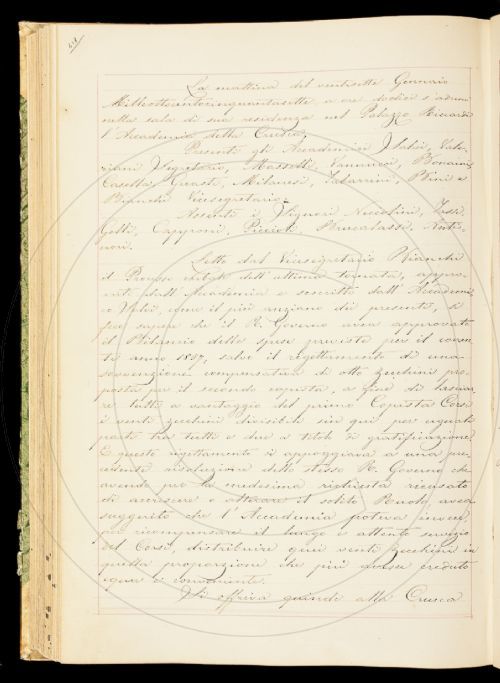 La mattina del ventisette Gennaio
Milleottocentocinquantasette a ore dodici s'adunò
nella sala di sua residenza nel Palazzo Riccardi
l'Accademia della Crusca.
Presenti gli Accademici
Segretario, Masselli, Vannucci, Bonaini,
Casella, Guasti, Milanesi, Tabarrini, Bini e
Bianchi Vicesegretario.
Assenti i Signori Niccolini,
Gelli, Capponi, Antinori.
Letto dal Vicesegretario Bianchi
il Processo verbale dell'ultima tornata, approvato
dall'Accademia e soscritto dall'Accademico
come il più anziano dei presenti, si
fece sapere che il R. Governo aveva approvato
il Bilancio delle spese previste per il corrente
anno 1857, salvo il rigettamento di una
sovvenzione compensativa di otto zecchini proposta
per il secondo copista, a fine di lasciare
tutti a vantaggio del primo Copista Corsi
i venti zecchini divisibili sin qui per uguale
parte tra tutti e due a titolo di gratificazione.
E questo rigettamento si appoggiava a una precedente
risoluzione dello stesso R. Governo che
avendo per la medesima richiesta ricusato
di accrescere o alterare il solito Ruolo, avea
suggerito che l'Accademia poteva invece,
per ricompensare il lungo e attento servizio
del Corsi, distribuire quei venti zecchini in
quella proporzione che più avesse creduto
equa e conveniente.
Si offriva quindi alla Crusca